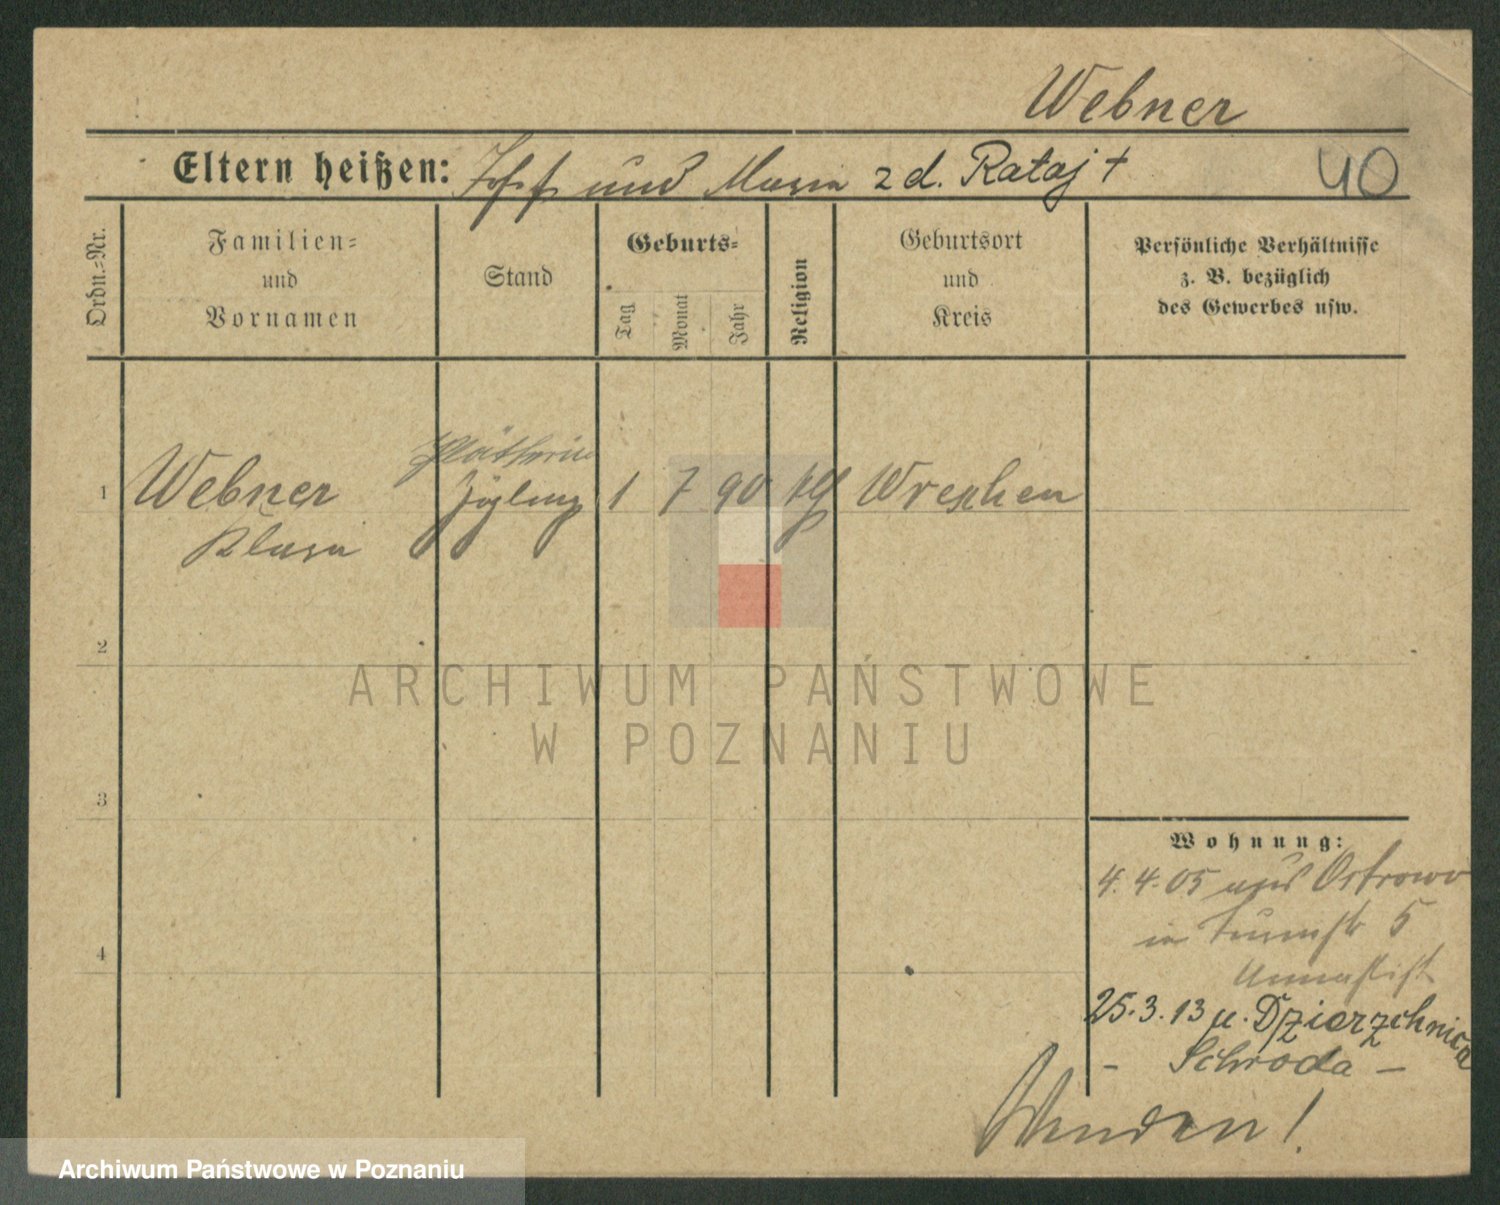 Webner
Eltern heißen: Josef und Maria z d. Rataj +
40
Ordn.-Nr.
Familien-
und
Vornamen
Stand
Geburts-
Tag
Monat
Jahr
Religion
Geburtsort
und
Kreis
Persönliche Verhältnisse
z. B. bezüglich
des Gewerbes usw.
Plätterin
1 Webner Zögling 1 7 90 kth Wreschen
Klara
2
ARCHIWUM PAŃSTWOWE
W POZNANIU
3
Wohnung:
4. 4. 05 aus Ostrowo
in 5
4
Annastift
25. 3. 13 n. Dzierzchnica
- Schroda -
Wenden!
Archiwum Państwowe w Poznaniu